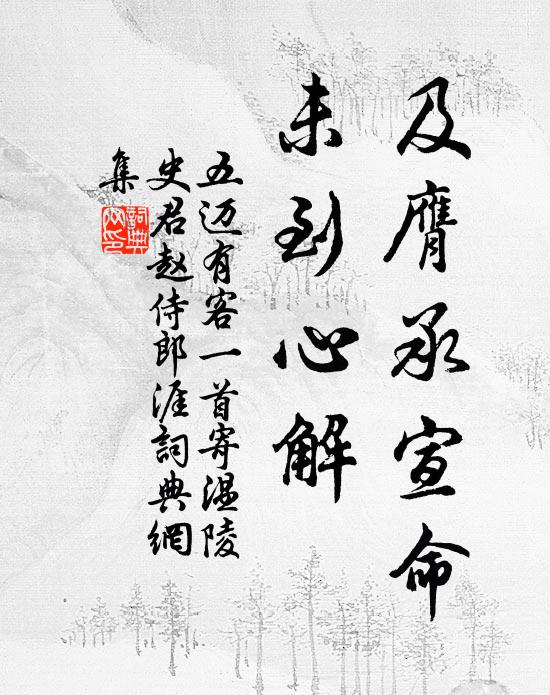 及膺承宣命
未到心解
五迈有客一首寄温陵
史君赵侍郎涯詞典網
集
詞典
網印